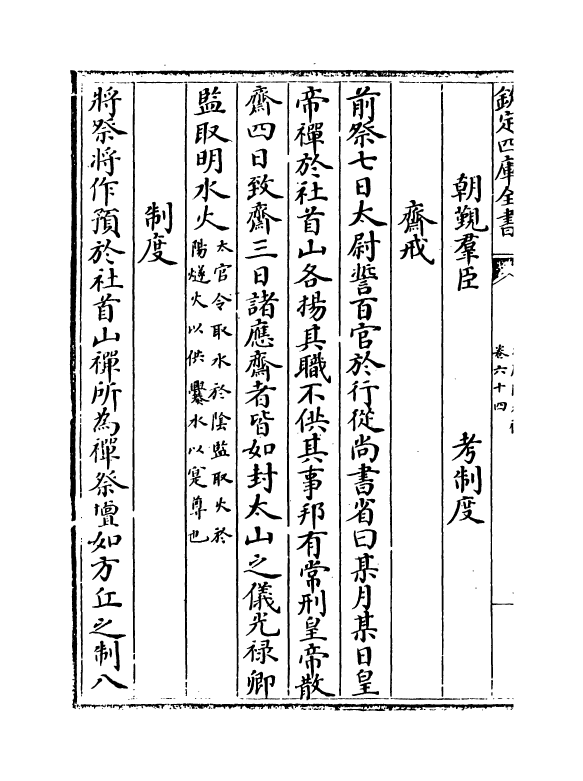 欽定四庫全書
卷六十四
朝覲羣臣　考制度
齋戒
前祭七日太尉誓百官於行從尚書省曰某月某日皇
帝禪於社首山各揚其職不供其事邦有常刑皇帝散
齋四日致齋三日諸應齋者皆如封太山之儀光禄卿
監取明水火太官令取水於陰監取火於
陽燧火以供爨水以寔尊也
制度
將祭將作預於社首山禪所為禪祭壇如方丘之制八